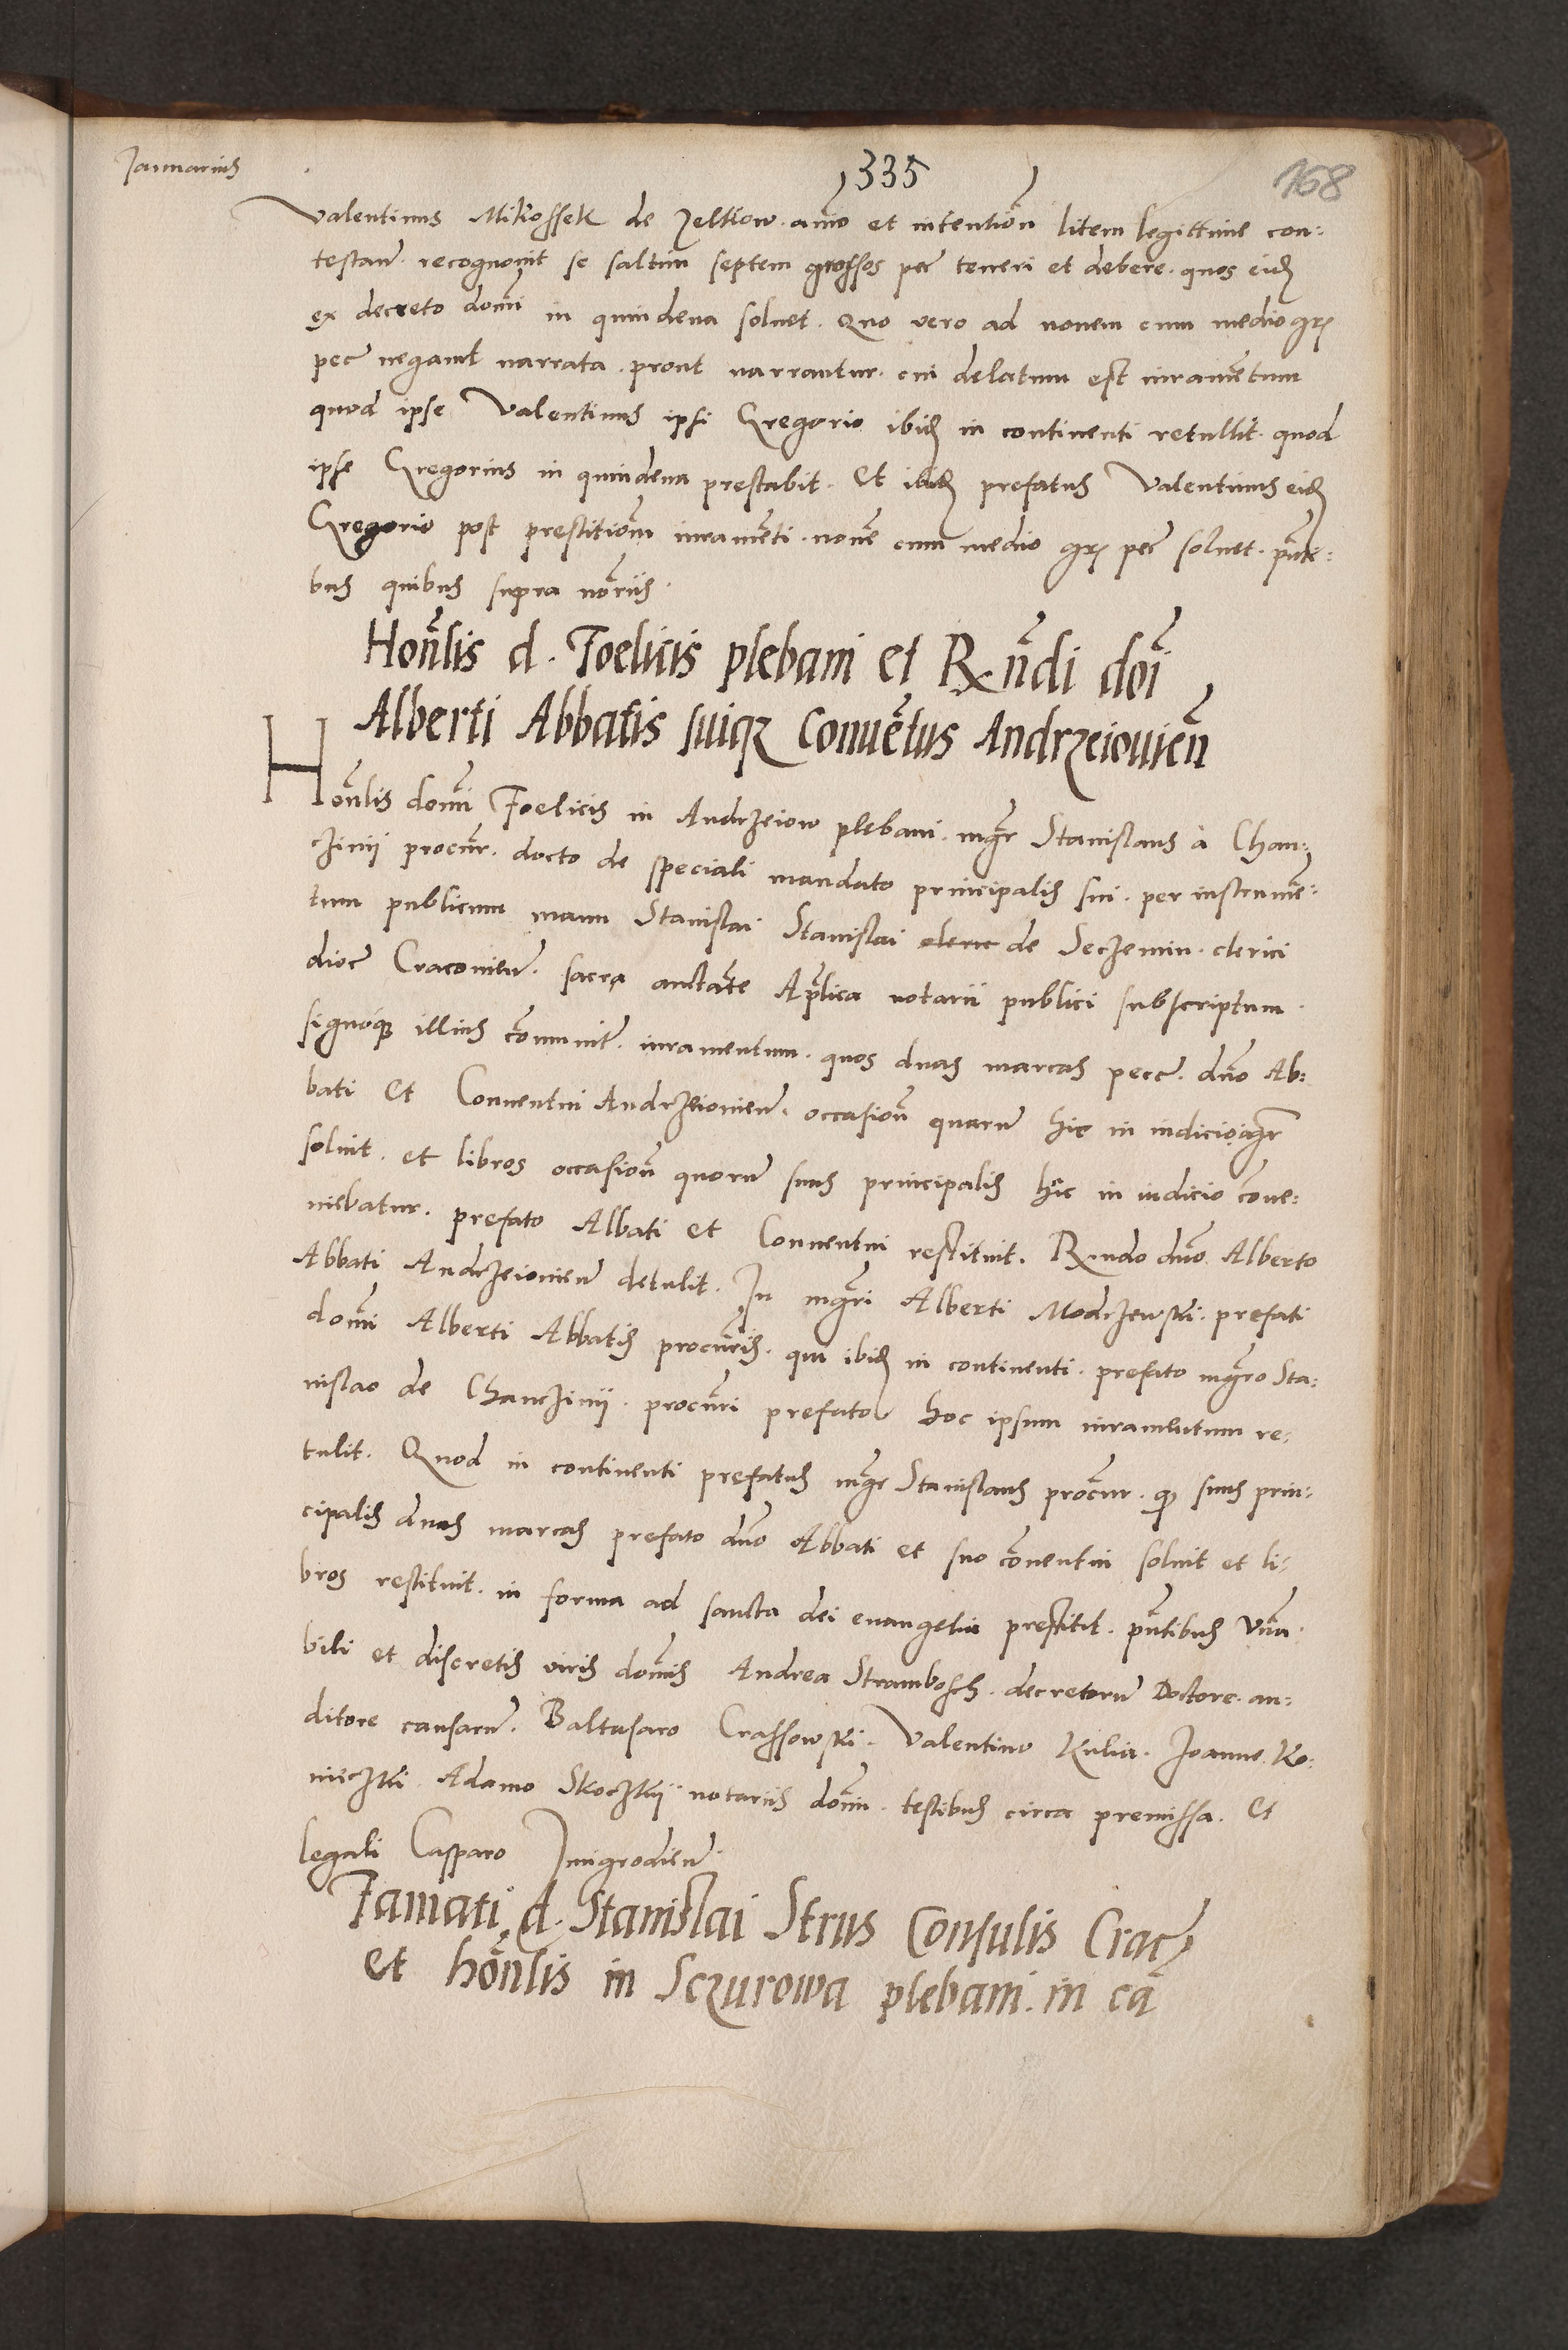 Januarius
335
168
Valentinus Mikossek de Zelkow. aīo et intentiōn litem legittime con:
testan̄. recognouit se saltim septem grossos pec̄ teneri et debere. quos eidē
ex decreto domī in quindena soluet. Quo vero ad nouem cum medio grō
pec̄ negauit narrata. prout narrantur. cui delatum est iuramētum
quod ipse Valentinus ipsi Gregorio ibidē in continenti retullit. quod
ipse Gregorius in quindena prestabit. Et ibidē prefatus Valentinus eidē
Gregorio post prestitiōm iuramēti. nouē cum medio grō pec̄ soluet. pn̄ti:
bus quibus supra nōriis.
Hon̄lis d. Foelicis plebani et Rn̄di dōi
Alberti Abbatis suiqȝ Conuētus Andrzeiouien̄
Hon̄lis domī Foelicis in Andrzeiow plebani. mgr̄ Stanislaus à Chan:
czinii procur̄. docto de speciali mandato principalis sui. per instrumē:
tum publicum manu Stanislai Stanislai cleric de Seczemin. clerici
dioc̄ Cracouien̄. sacra auctāte Ap̄lica notarii publici subscriptum.
signóqȝ illius cōmunit̄. iuramentum. quos duas marcas pecc̄. dn̄o Ab:
bati et Conuentui Andrzeiouien̄. occasiōn quarum̄ hic in iudicio agr̄
soluit. et libros occasiōn quorum̄ suus principalis hic in iudicio cōue:
niebatur. prefato Abbati et Conuentui restituit. Rndo dn̄o Alberto
Abbati Andrzeiouien̄ detulit. In mgr̄i Alberti Modrzewski. prefati
domī Alberti Abbatis procur̄is. qui ibidē in continenti. prefato mgr̄o Sta:
nislao de Chanczinii. procur̄i prefato hoc ipsum iuramentum re:
tulit. Quod in continenti prefatus mgr̄ Stanislaus procur̄. qȝ suus prin:
cipalis duas marcas prefato dn̄o Abbati et suo cōuentui soluit et li:
bros restituit. in forma ad sancta dei euangelia prestitit. pn̄tibus Vn̄a:
bili et discretis viris domīs Andrea Strambosch. decretorum̄ Doctore. au:
ditore causarum̄. Baltasaro Crassowski. Valentino Kulia. Joanne Ko:
nieczki. Adamo Skoczkii notariis domī. testibus circa premissa. Et
legali Casparo Zmigrodien̄.
Famati d. Stanislai Strus Consulis Crac̄
et hōn̄lis in Sczurowa plebani. in cā